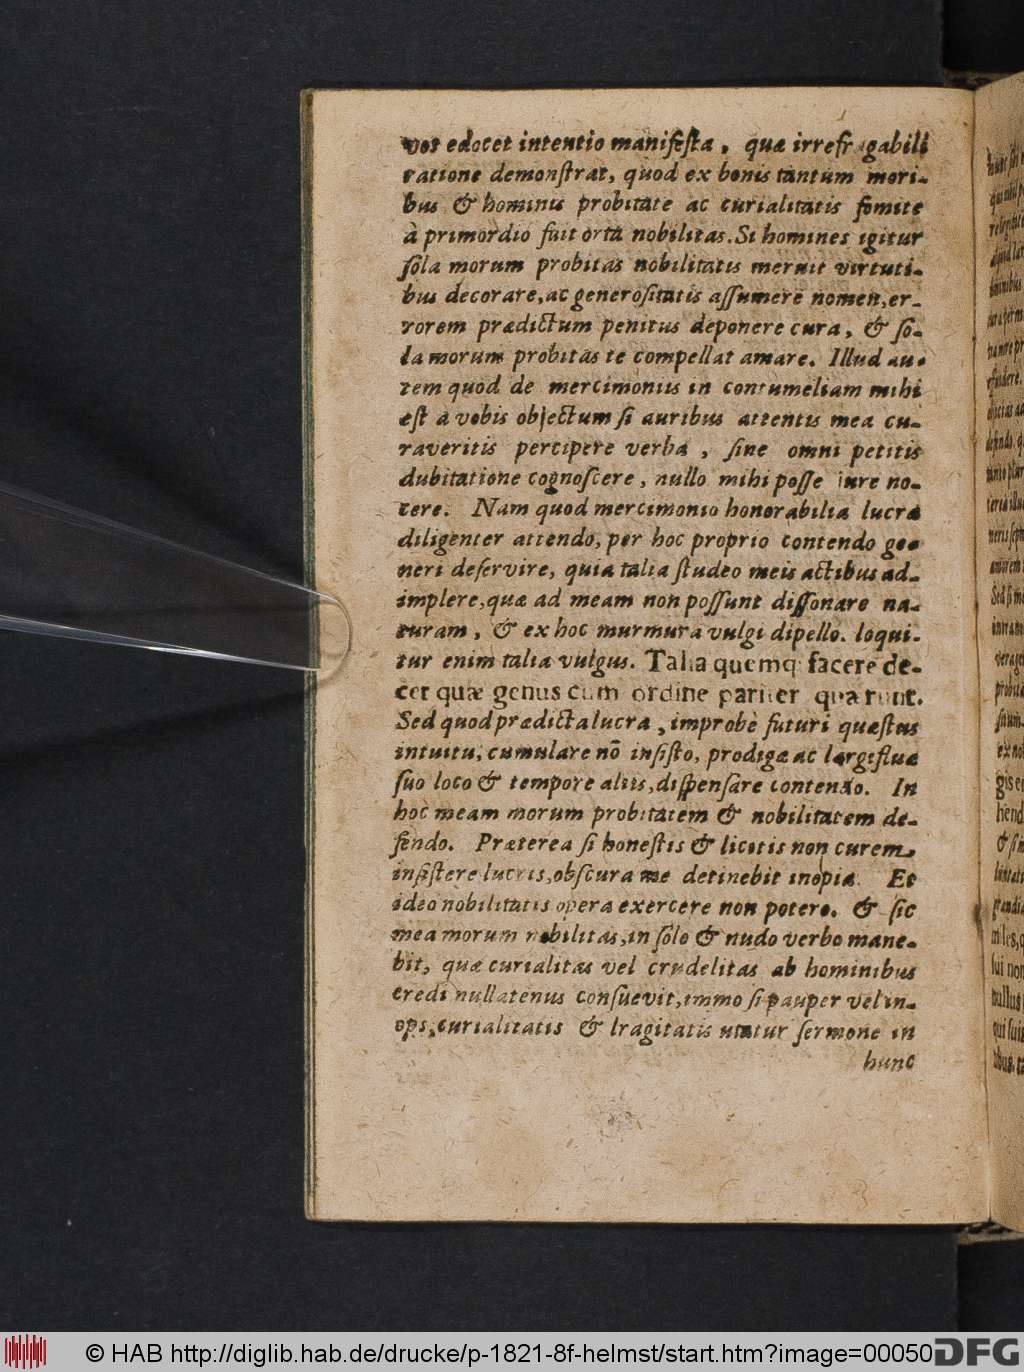 vos edocet intentio manifesta, quæ irrefragabili
ratione demonstrat, quod ex bonis tantum mori-
bus & hominis probitate ac curialitatis fomite
à primordio fuit orta nobilitas. Si homines igitur
sola morum probitas nobilitatis meruit virtuti-
bus decorare, ac generositatis assumere nomen, er-
rorem prædictum penitus deponere cura, & so-
la morum probitas te compellat amare. Illud au-
tem quod de mercimoniis in contumeliam mihi
est à vobis objectum si auribus attentis mea cu-
raveritis percipere verba, sine omni petitis
dubitatione cognoscere, nullo mihi posse iure no-
cere. Nam quod mercimonio honorabilia lucra
diligenter attendo, per hoc proprio contendo ge-
neri deservire, quia talia studeo meis actibus ad-
implere, quæ ad meam non possunt dissonare na-
turam, & ex hoc murmura vulgi dipello. loqui-
tur enim talia vulgus. Talia quemq; facere de-
cet quæ genus cum ordine pariter quærunt.
Sed quod prædicta lucra, improbè futuri quæstus
intuitu, cumulare nō insisto, prodigæ ac largifluæ
suo loco & tempore aliis, dispensare contendo. In
hoc meam morum probitatem & nobilitatem de-
fendo. Præterea si honestis & licitis non curem
insistere lucris, obscura me detinebit inopia. Et
ideo nobilitatis opera exercere non potero. & sic
mea morum nobilitas, in solo & nudo verbo mane-
bit, quæ curialitas vel crudelitas ab hominibus
credi nullatenus consuevit, immo si pauper vel in-
ops, curialitatis & lragitatis utatur sermone in
hunc
© HAB http://diglib.hab.de/drucke/p-1821-8f-helmst/start.htm?image=00050
DFG